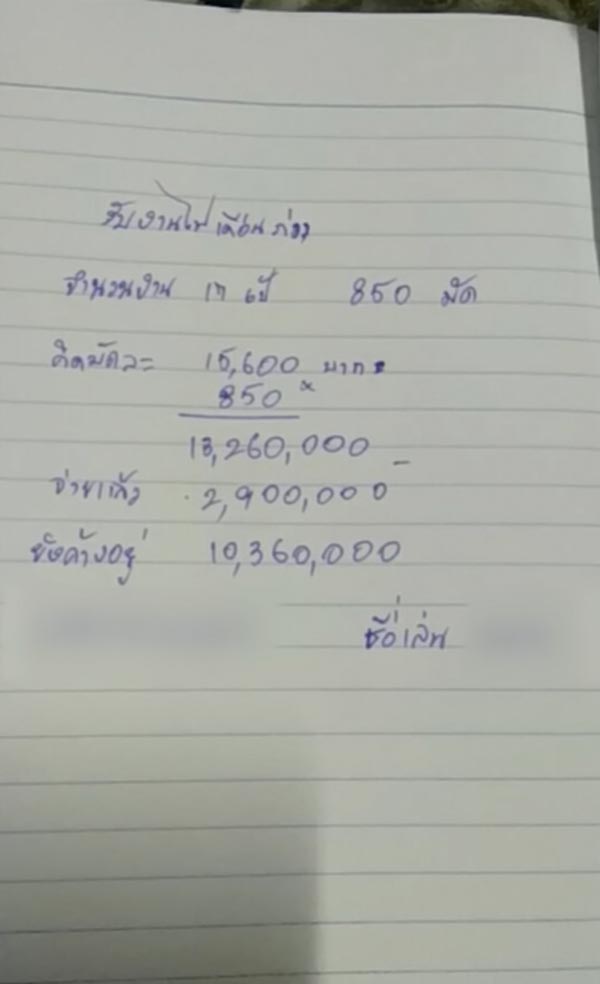 รับงานไปเดือนก่อน
จำนวนงาน 17 เป้ 850 มัด
คิดมัดละ 15,600 บาท
850 x
13,260,000 -
จ่ายแล้ว 2,900,000
ยังค้างอยู่ 10,360,000
ชื่อเล่น